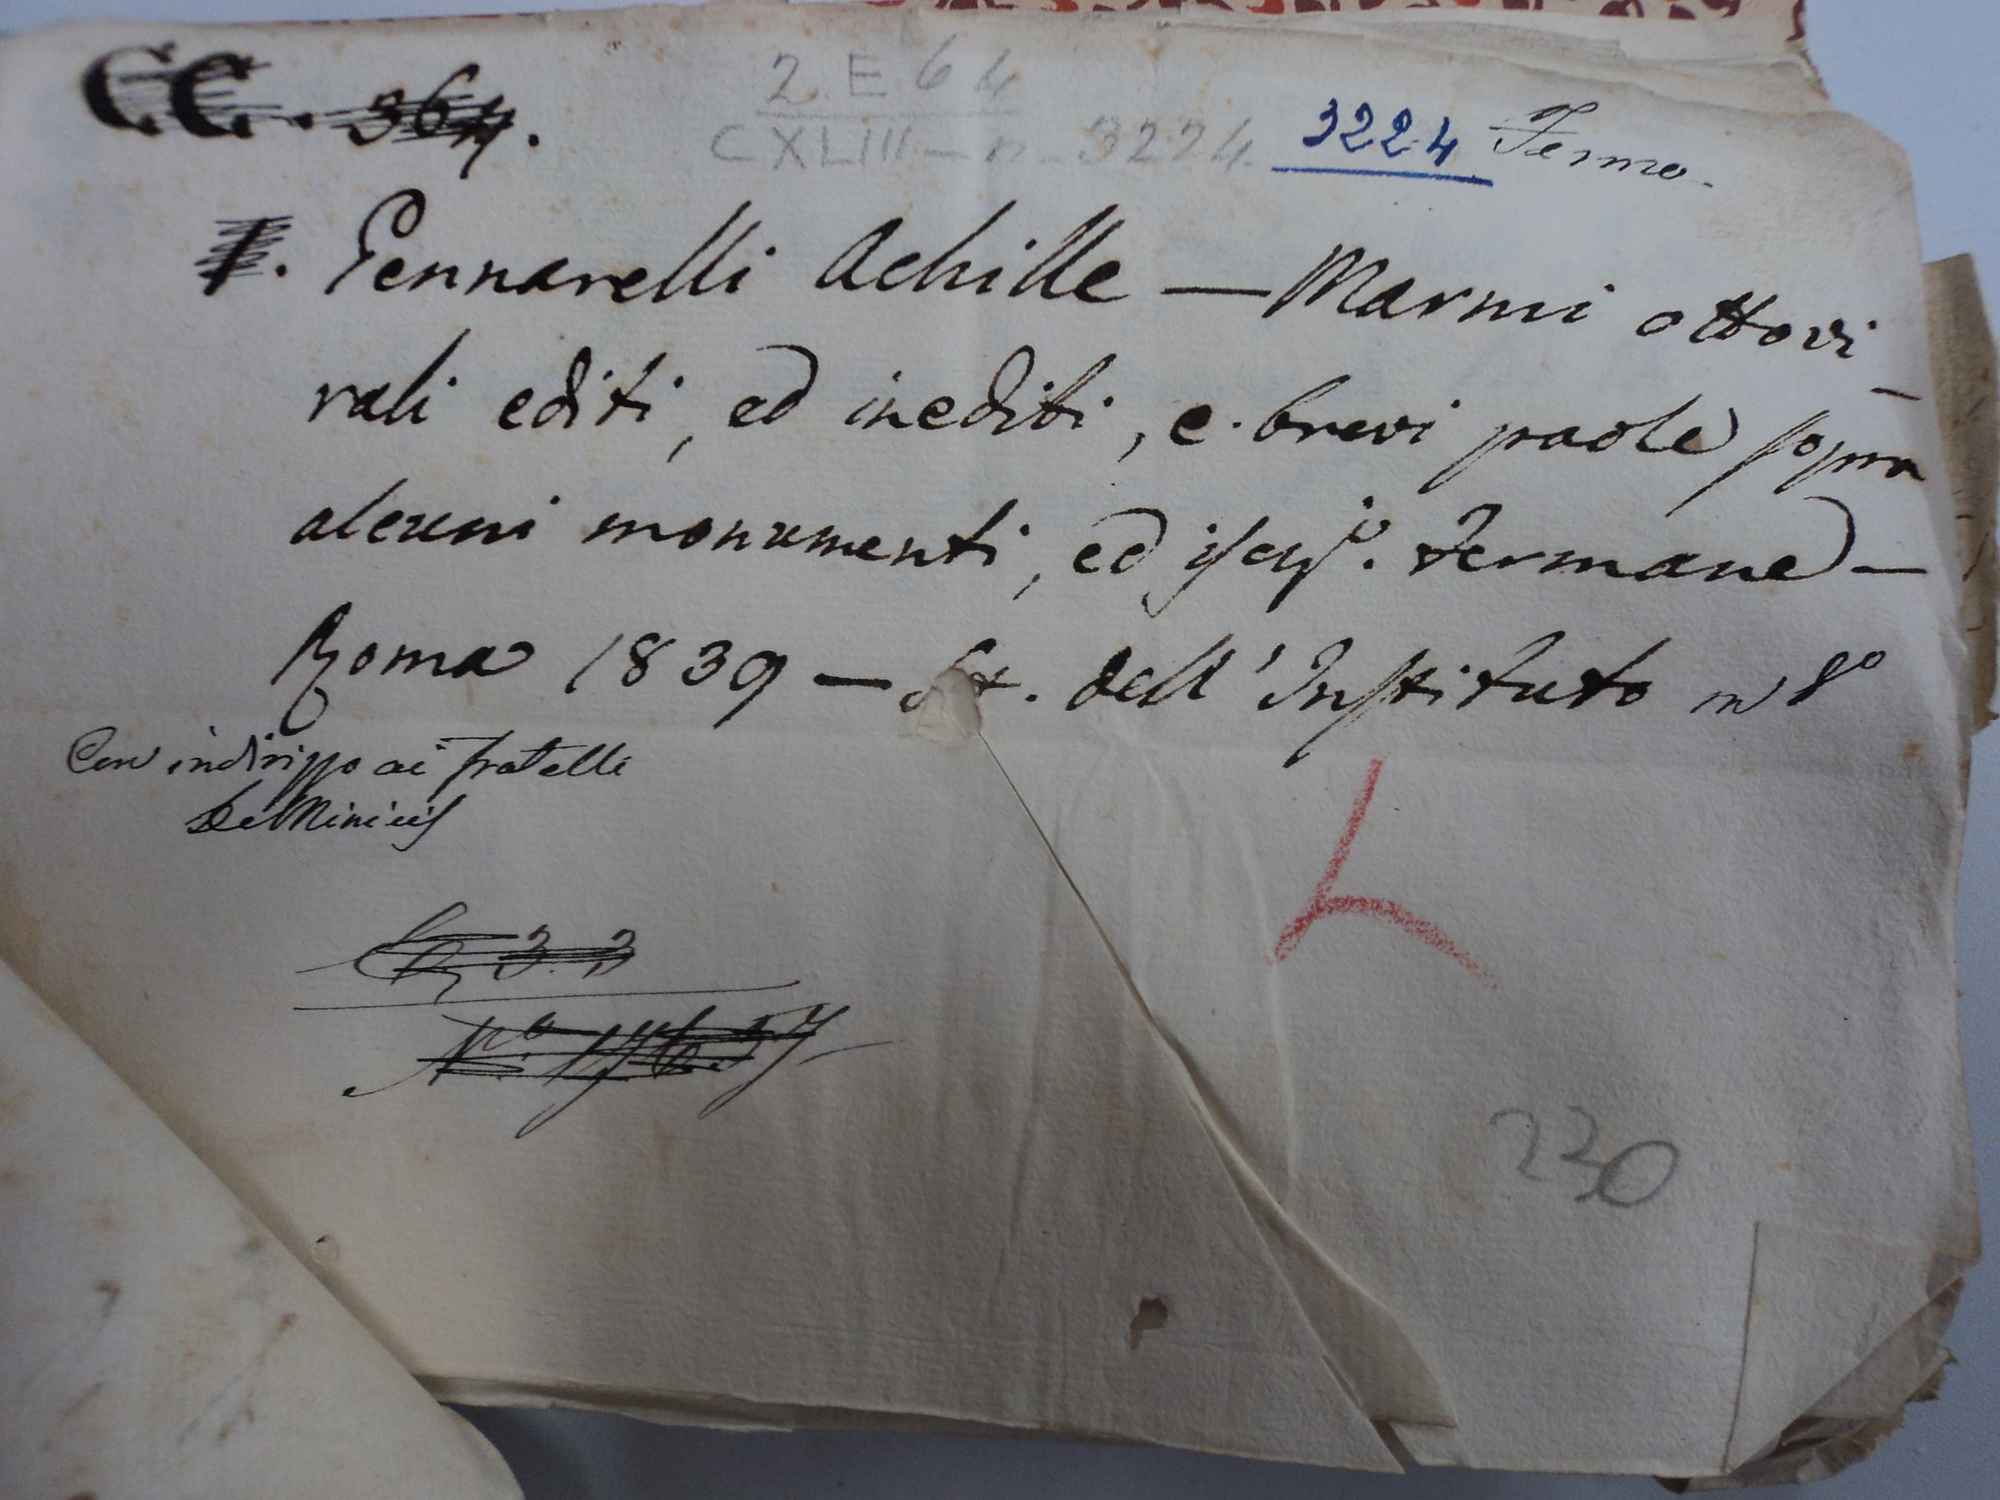 CC. 364.
2 E 64
CXLIII - n. 3224
3224 Fermo.
1. Gennarelli Achille — Marmi ottovi-
rali editi, ed inediti, e brevi paole sopra
alcuni monumenti, ed iscriz.i Fermane —
Roma 1839 — dell'Instituto in 8°
Con indirizzo ai fratelli
De Minicis
230